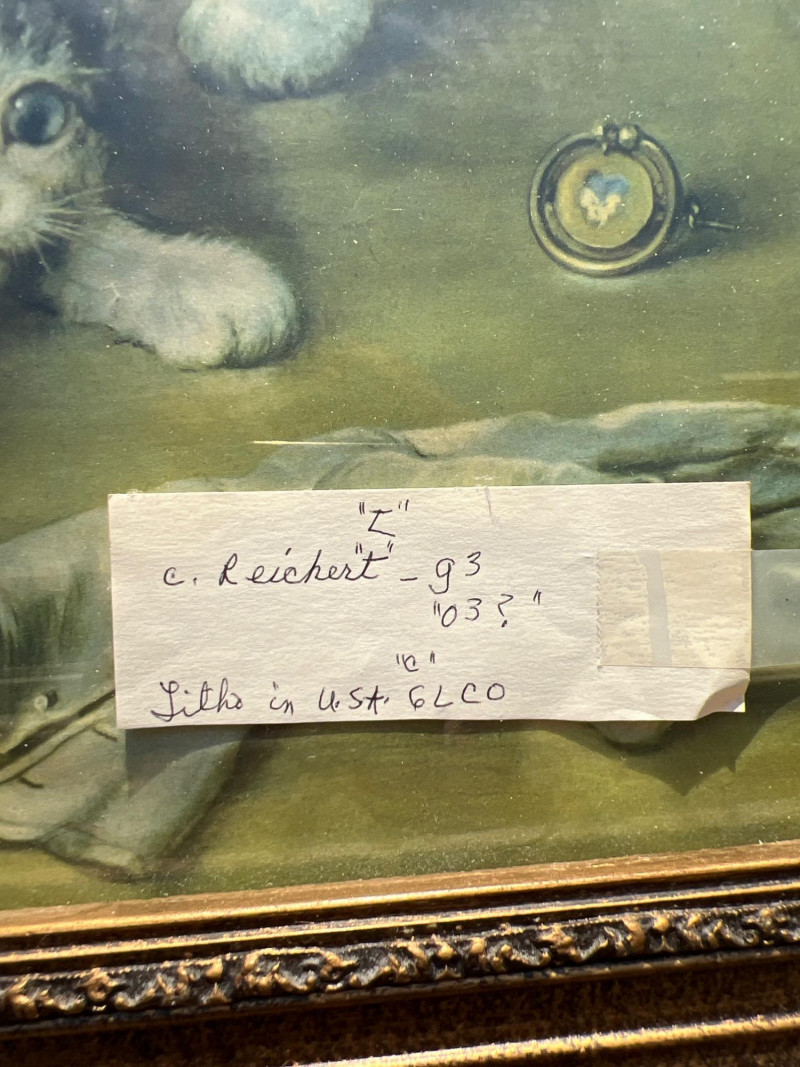 "I"
c. Reichert"t" - g3
"03?"
"c"
Litho in U.S.A. GLCO